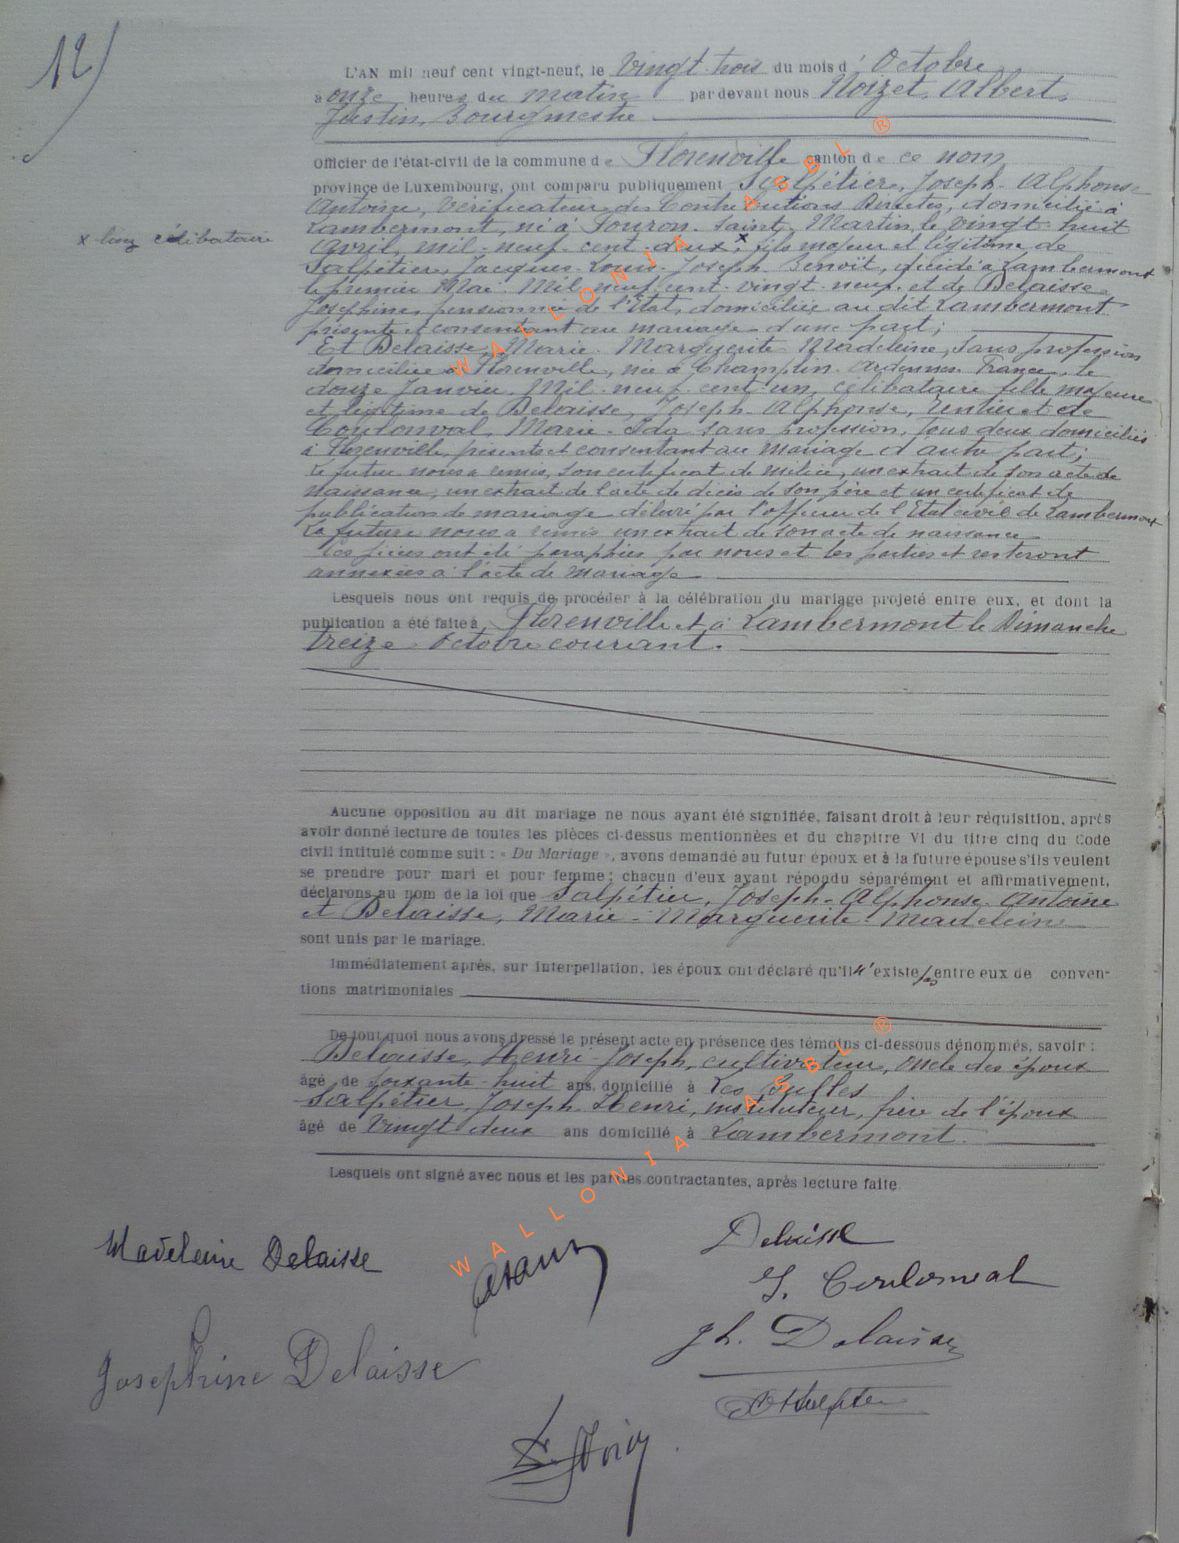 12)
L'AN mil neuf cent vingt-neuf, le Vingt-trois du mois d' Octobre
à onze heures du matin par devant nous Noizet, Albert,
Justin, Bourgmestre
Officier de l'état-civil de la commune de Florenville canton de ce nom
province de Luxembourg, ont comparu publiquement Salpétier, Joseph-Alphonse
Antoine, Vérificateur des Contributions Directes, domicilié à
Lambermont, né à Tournay Saint Martin, le vingt-huit
x célibataire
avril mil-neuf-cent-deux x, fils majeur et légitime de
Salpétier, Jacques-Louis-Joseph-Benoît, décédé à Lambermont
le premier Mai Mil neuf cent vingt-neuf, et de Delaisse
Joséphine, pensionnée de l'Etat, domiciliée au dit Lambermont
présente et consentant au mariage d'une part;
Et Delaisse, Marie-Marguerite-Madeleine, sans profession
domiciliée à Florenville, née à Champlin-Ardennes-France, le
douze Janvier Mil-neuf-cent-un, célibataire fille majeure
et légitime de Delaisse, Joseph-Alphonse, rentier et de
Coulonval, Marie-Ida sans profession, tous deux domiciliés
à Florenville, présents et consentant au mariage d'autre part;
Le futur nous a remis, son certificat de milice, un extrait de son acte de
naissance, un extrait de l'acte de décès de son père et un certificat de
publication de mariage délivré par l'officier de l'Etat civil de Lambermont
La future nous a remis un extrait de son acte de naissance
Ces pièces ont été paraphées par nous et les parties et resteront
annexées à l'acte de mariage
Lesquels nous ont requis de procéder à la célébration du mariage projeté entre eux, et dont la
publication a été faite à Florenville et à Lambermont le Dimanche
treize Octobre courant.
Aucune opposition au dit mariage ne nous ayant été signifiée, faisant droit à leur réquisition, après
avoir donné lecture de toutes les pièces ci-dessus mentionnées et du chapitre VI du titre cinq du Code
civil intitulé comme suit : « Du Mariage », avons demandé au futur époux et à la future épouse s'ils veulent
se prendre pour mari et pour femme ; chacun d'eux ayant répondu séparément et affirmativement,
déclarons au nom de la loi que Salpétier, Joseph-Alphonse-Antoine
et Delaisse, Marie-Marguerite-Madeleine
sont unis par le mariage.
Immédiatement après, sur interpellation, les époux ont déclaré qu'il n'existe pas entre eux de conven-
tions matrimoniales
De tout quoi nous avons dressé le présent acte en présence des témoins ci-dessous dénommés, savoir :
Delaisse, Henri-Joseph, cultivateur, oncle des époux
âgé de soixante-huit ans, domicilié à Les Bulles
Salpétier, Joseph-Henri, instituteur, frère de l'époux
âgé de Vingt-deux ans domicilié à Lambermont.
Lesquels ont signé avec nous et les parties contractantes, après lecture faite
Madeleine Delaisse
Delaisse
Coulonval
Joséphine Delaisse
Jh. Delaisse
WALLONIA ASBL ®
WALLONIA ASBL ®